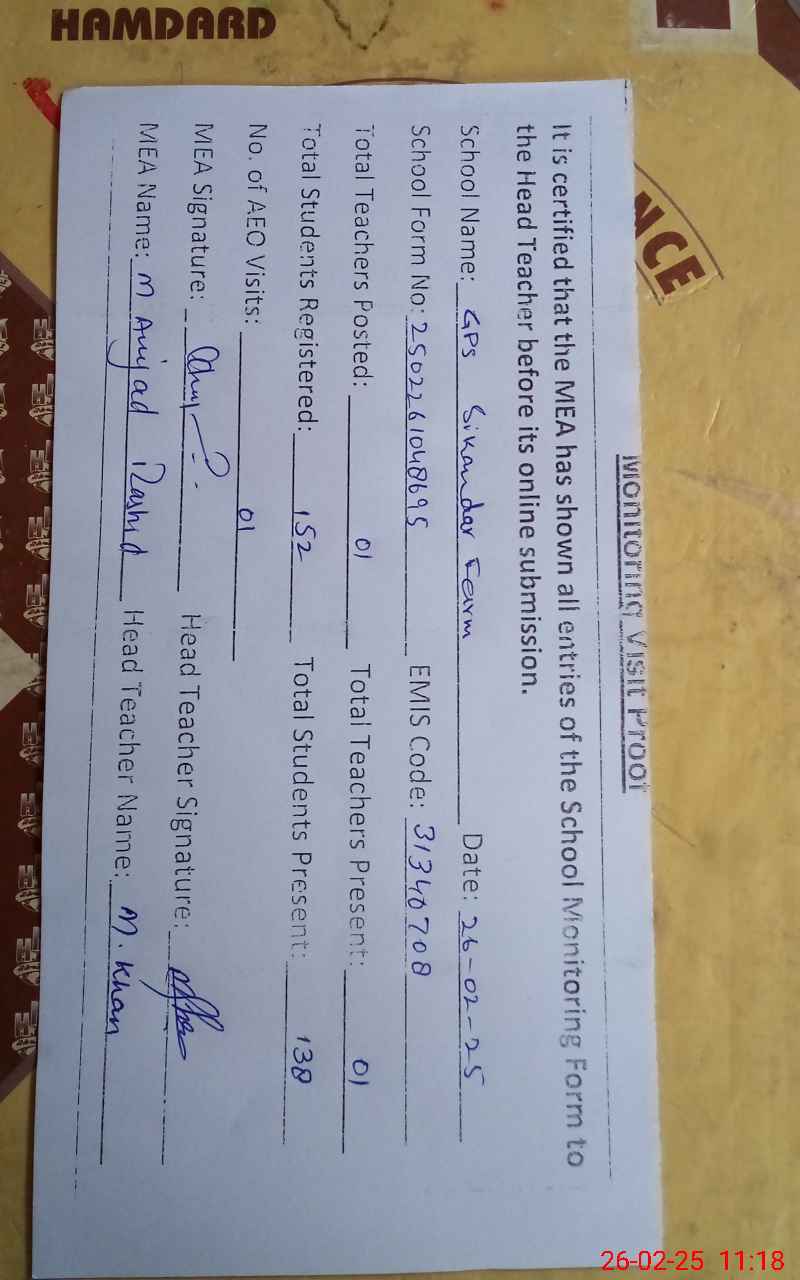 HAMDARD
NCE
Monitoring Visit Proof
It is certified that the MEA has shown all entries of the School Monitoring Form to
the Head Teacher before its online submission.
School Name: GPS Sikandar Farm Date: 26-02-25
School Form No: 2502261048695 EMIS Code: 31340708
Total Teachers Posted: 01 Total Teachers Present: 01
Total Students Registered: 152 Total Students Present: 138
No. of AEO Visits: 01
MEA Signature: Head Teacher Signature:
MEA Name: M Amjad Rashid Head Teacher Name: M. Khan
26-02-25 11:18